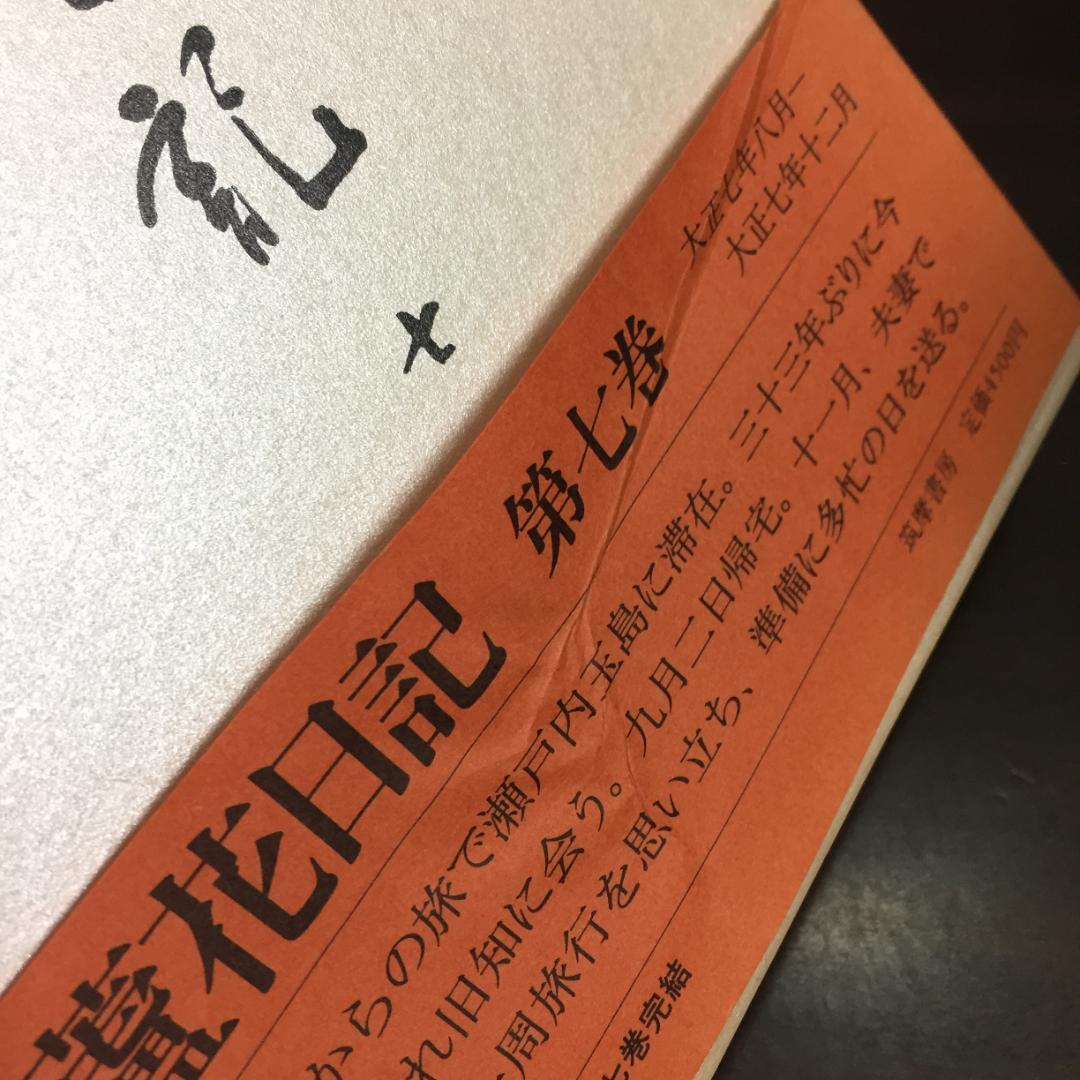 記
七
蘆花日記 第七巻
大正七年八月—
大正七年十二月
からの旅で瀬戸内玉島に滞在。三十三年ぶりに今
れ旧知に会う。九月二日帰宅。十一月、夫妻で
周旅行を思い立ち、準備に多忙の日を送る。
七巻完結
筑摩書房 定価4500円